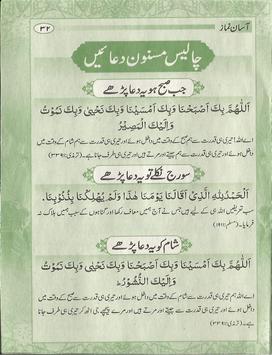 آسان نماز
۳۲
چالیس مسنون دعائیں
جب صبح ہو یہ دعا پڑھے
اَللّٰهُمَّ بِكَ اَصْبَحْنَا وَبِكَ اَمْسَيْنَا وَبِكَ نَحْيٰى وَبِكَ نَمُوْتُ
وَاِلَيْكَ الْمَصِيْرُ
اے اللہ! تیری ہی قدرت سے ہم صبح کے وقت میں داخل ہوئے اور تیری ہی قدرت سے ہم شام کے وقت میں
داخل ہوئے اور تیری ہی قدرت سے ہم جیتے اور مرتے ہیں اور تیری ہی طرف جانا ہے۔ (ترمذی:
سورج نکلے تو یہ دعا پڑھے
اَلْحَمْدُلِلّٰهِ الَّذِيْ اَقَالَنَا يَوْمَنَا هٰذَا وَلَمْ يُهْلِكْنَا بِذُنُوْبِنَا.
سب تعریفیں اللہ ہی کے لیے ہیں جس نے آج ہمیں معاف رکھا اور گناہوں کے سبب ہمیں ہلاک نہ
فرمایا۔ (مسلم:
شام کو یہ دعا پڑھے
اَللّٰهُمَّ بِكَ اَمْسَيْنَا وَبِكَ اَصْبَحْنَا وَبِكَ نَحْيٰى وَبِكَ نَمُوْتُ
وَاِلَيْكَ النُّشُوْرُ.
اے اللہ ہم تیری ہی قدرت سے شام کے وقت میں داخل ہوئے اور تیری ہی قدرت سے صبح کے وقت میں
داخل ہوئے اور تیری قدرت سے جیتے ہیں اور مرتے ہیں اور مرے پیچھے جی اٹھ کر تیری ہی طرف جانا
ہے۔ (ترمذی: